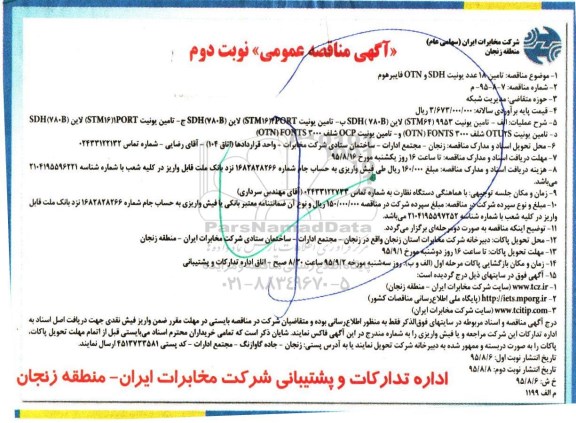 شرکت مخابرات ایران (سهامی عام)
منطقه زنجان
«آگهی مناقصه عمومی» نوبت دوم
۱- موضوع مناقصه: تامین ۱۸ عدد یونیت SDH و OTN فایبرهوم
۲- شماره مناقصه: ۷-۸-۹۵- م
۳- حوزه متقاضی: مدیریت شبکه
۴- قیمت پایه برآوردی سالانه: ۳/۶۷۳/۰۰۰/۰۰۰ ریال
۵- شرح عملیات: الف - تامین یونیت ۹۹۵۳ (STM۶۴) لاین SDH (۷۸۰B) ب- تامین یونیت STM۱۶)۲PORT) لاین SDH (۷۸۰B) ج- تامین یونیت STM۱۶)۱PORT) لاین SDH (۷۸۰B)
د- تامین یونیت OTU۲S شلف OTN) FONTS ۳۰۰۰) و - تامین یونیت OCP شلف ۳۰۰۰ OTN) FONTS)
۶- محل تحویل اسناد و مدارک مناقصه: زنجان - مجتمع ادارات - ساختمان ستادی شرکت مخابرات - واحد قراردادها (اتاق ۱۰۴) - آقای رضایی - شماره تماس ۰۲۴۳۳۱۲۲۱۳۲
۷- مهلت دریافت اسناد و مدارک مناقصه: تا ساعت ۱۶ روز یکشنبه مورخ ۹۵/۸/۱۶
۸- هزینه دریافت اسناد و مدارک مناقصه: مبلغ ۱۶۰/۰۰۰ ریال طی فیش واریزی به حساب جام شماره ۱۶۸۲۸۲۸۲۶۶ نزد بانک ملت قابل واریز در کلیه شعب با شناسه ۲۱۰۴۱۹۵۵۹۶۲۲۱
می‌باشد.
۹- زمان و مکان جلسه توجیهی: با هماهنگی دستگاه نظارت به شماره تماس ۰۲۴۳۳۱۲۲۷۳۳ (آقای مهندس سرداری)
۱۰- مبلغ و نوع سپرده شرکت در مناقصه: مبلغ سپرده شرکت در مناقصه ۱۵۰/۰۰۰/۰۰۰ ریال و نوع آن ضمانتنامه معتبر بانکی یا فیش واریزی به حساب جام شماره ۱۶۸۲۸۲۸۲۶۶ نزد بانک ملت قابل
واریز در کلیه شعب با شماره شناسه ۲۱۰۴۱۹۵۵۹۷۲۵۲ می‌باشد.
۱۱- توضیح اینکه مناقصه به صورت دو مرحله‌ای برگزار می‌گردد.
۱۲- محل تحویل پاکات: دبیرخانه شرکت مخابرات استان زنجان واقع در زنجان - مجتمع ادارات - ساختمان ستادی شرکت مخابرات ایران - منطقه زنجان
۱۳- مهلت تحویل پاکات: تا ساعت ۱۶ روز دوشنبه مورخ ۹۵/۹/۱
۱۴- زمان و مکان بازگشایی پاکات مرحله اول (الف و ب): روز سه‌شنبه مورخه ۹۵/۹/۲ ساعت ۸/۳۰ صبح - اتاق اداره تدارکات و پشتیبانی
۱۵- آگهی فوق در سایتهای ذیل درج گردیده است:
۱- www.tcz.ir (سایت شرکت مخابرات ایران - منطقه زنجان)
۲- http://iets.mporg.ir (پایگاه ملی اطلاع‌رسانی مناقصات کشور)
۳- www.tcitip.com (سایت شرکت مخابرات ایران)
درج آگهی مناقصه و اسناد مربوطه در سایتهای فوق‌الذکر فقط به منظور اطلاع‌رسانی بوده و متقاضیان شرکت در مناقصه بایستی در مهلت مقرر ضمن واریز فیش نقدی جهت دریافت اصل اسناد به
اداره تدارکات این شرکت مراجعه و یا فیش واریزی را به شماره مندرج در این آگهی فاکس نمایند. شایان ذکر است که تمامی خریداران محترم اسناد می‌بایستی قبل از اتمام مهلت تحویل پاکات،
پاکات را به صورت دربسته و ممهور شده به دبیرخانه شرکت تحویل نمایند یا به آدرس پستی: زنجان - جاده گاوازنگ - مجتمع ادارات - کد پستی ۴۵۱۳۷۳۳۵۸۱ ارسال نمایند.
تاریخ انتشار نوبت اول: ۹۵/۸/۶
تاریخ انتشار نوبت دوم: ۹۵/۸/۸
خ ش: ۹۵/۸/۶
م الف ۱۱۹۹
اداره تدارکات و پشتیبانی شرکت مخابرات ایران- منطقه زنجان
ParsNamadData
۰۲۱-۸۸۳۴۹۶۷۰-۵